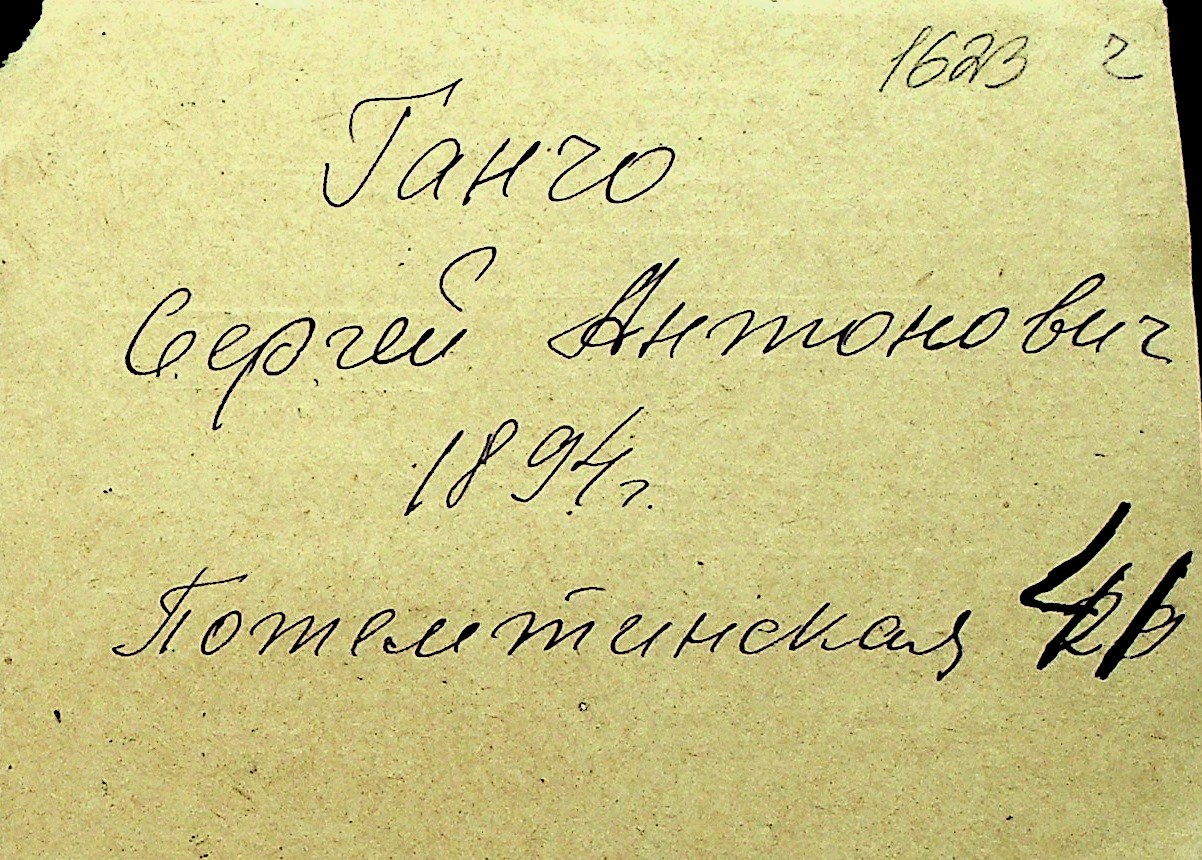 1623 г
Ганчо
Сергей Антонович
1894 г.
Потемтинская 41